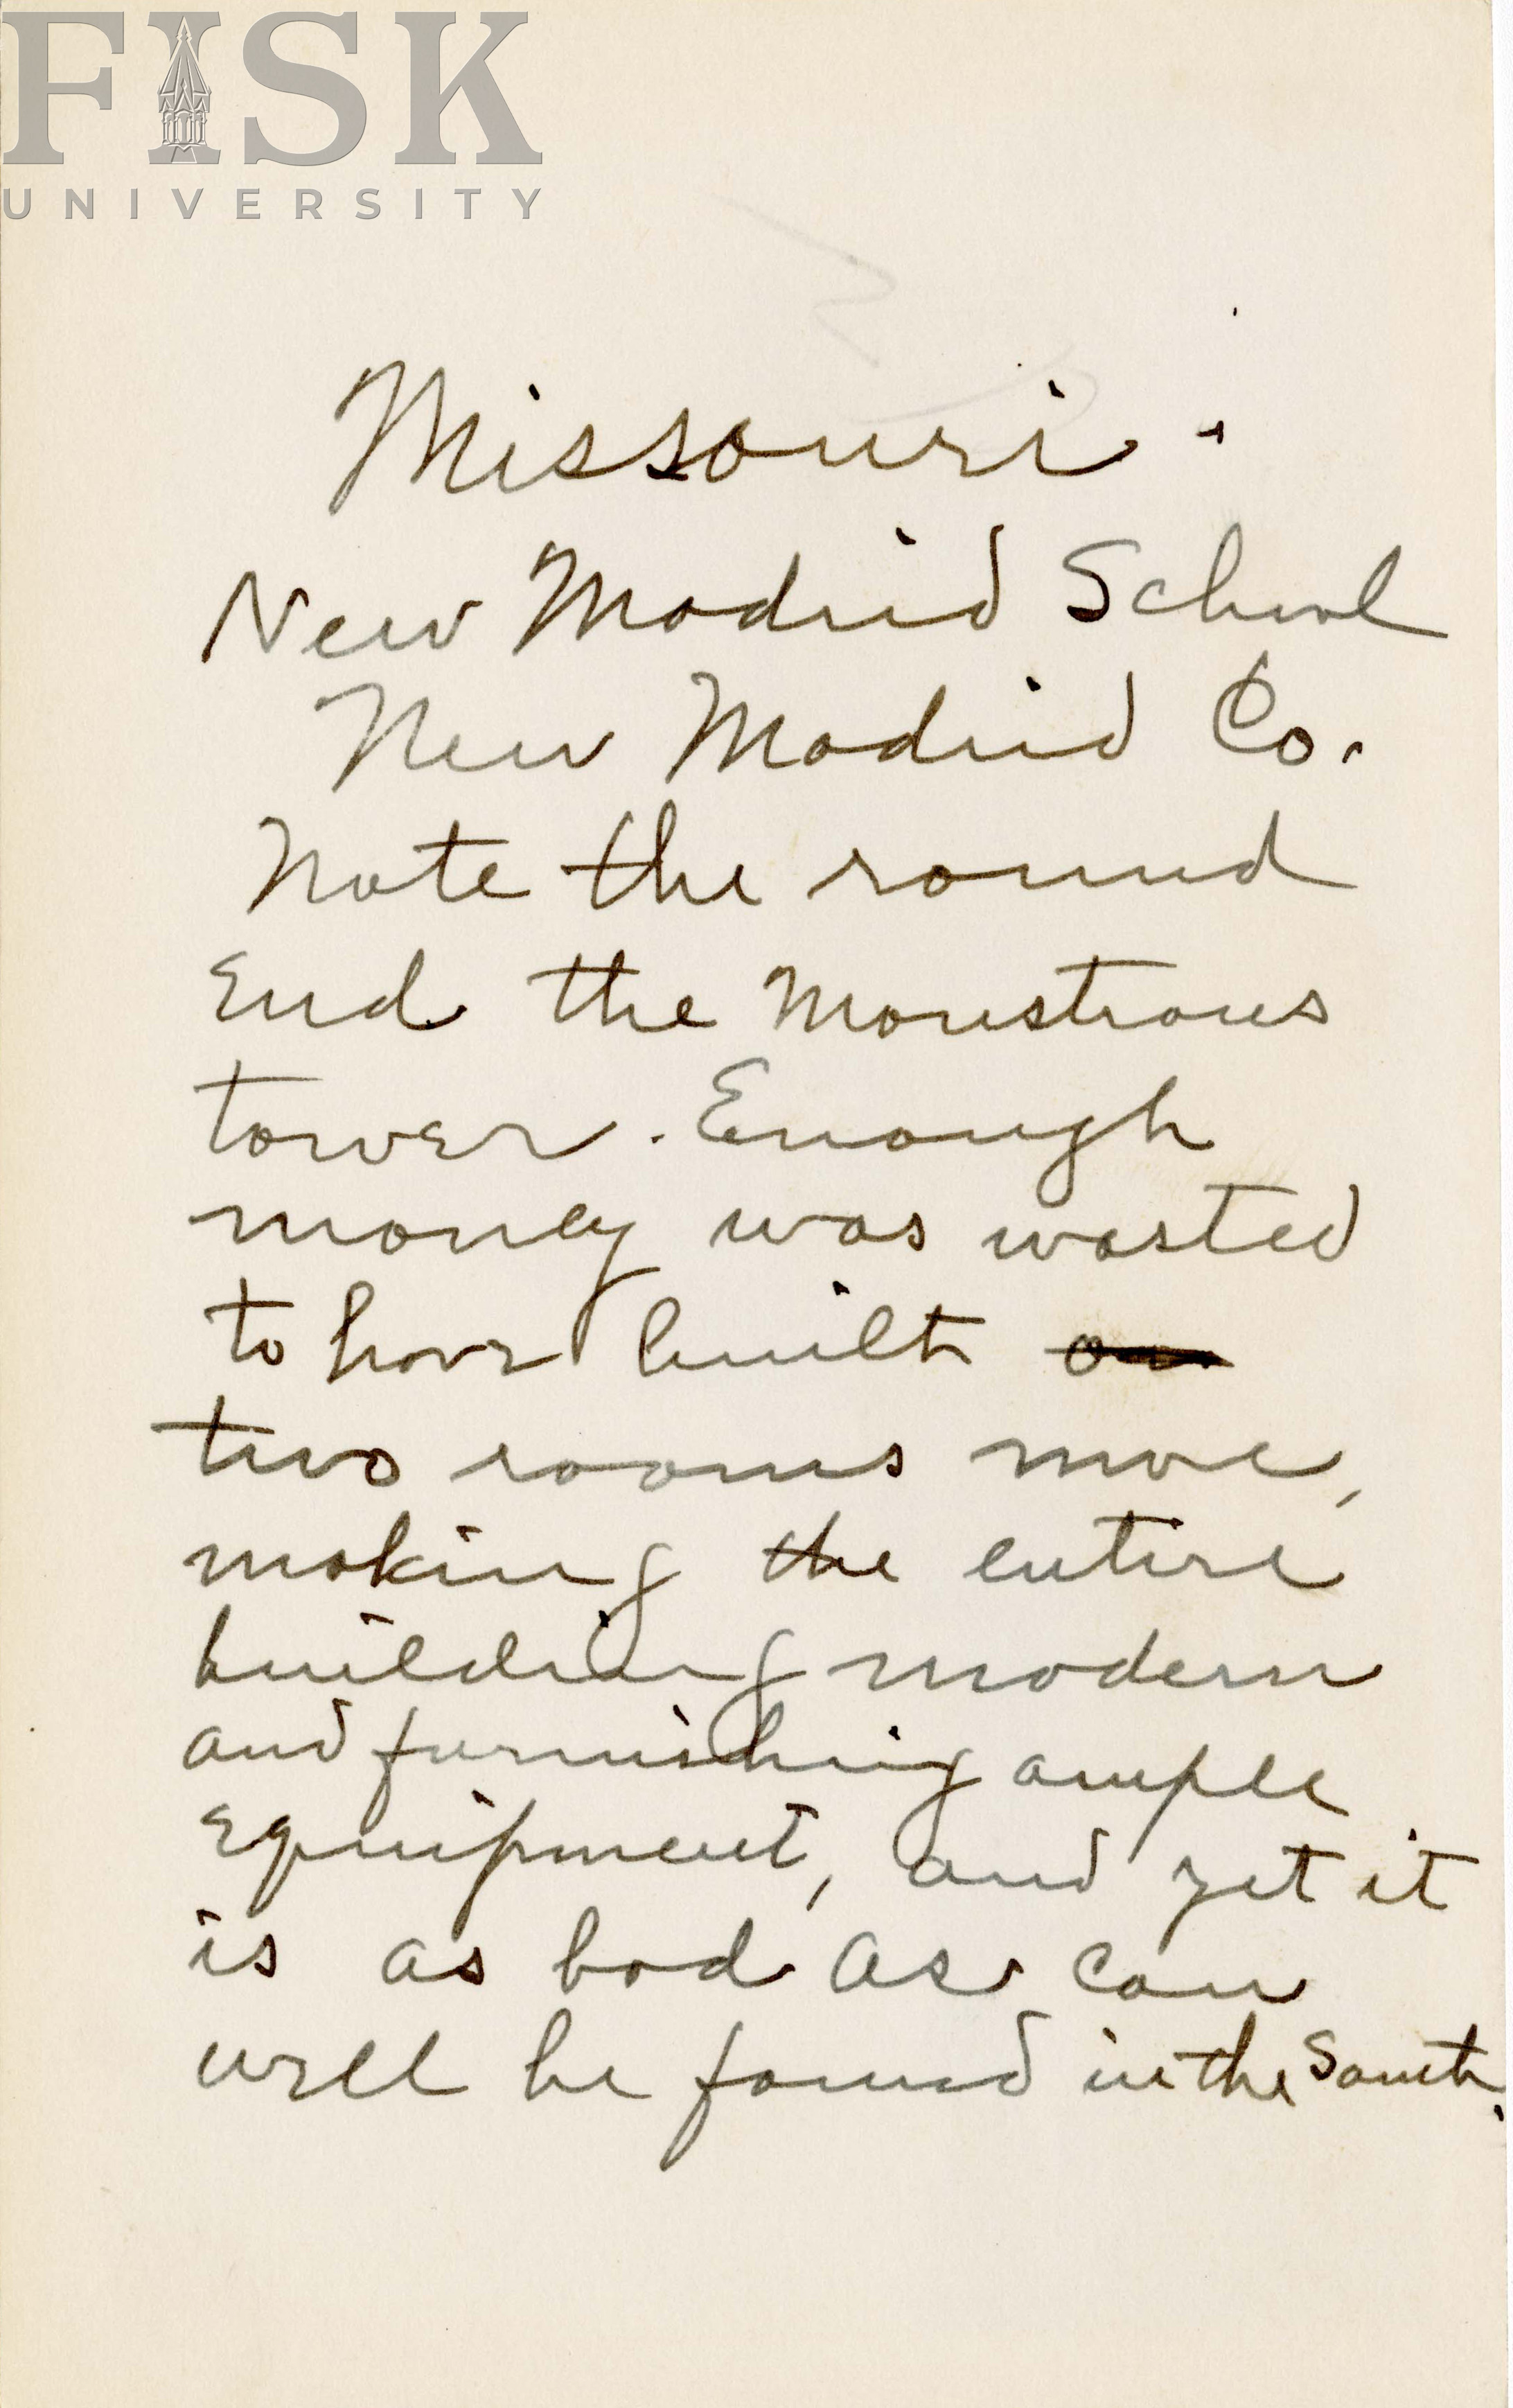 FISK
UNIVERSITY
Missouri.
New Madrid School
New Madrid Co.
Note the round
End the Monstrous
tower. Enough
money was wasted
to have built on
two rooms more,
making the entire
building modern
and furnishing ample
Equipment, and yet it
is as bad as can
well be found in the South.